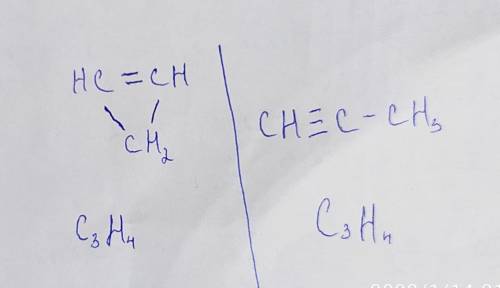 HC=CH
CH₂
C₃H₄
CH≡C-CH₃
C₃H₄